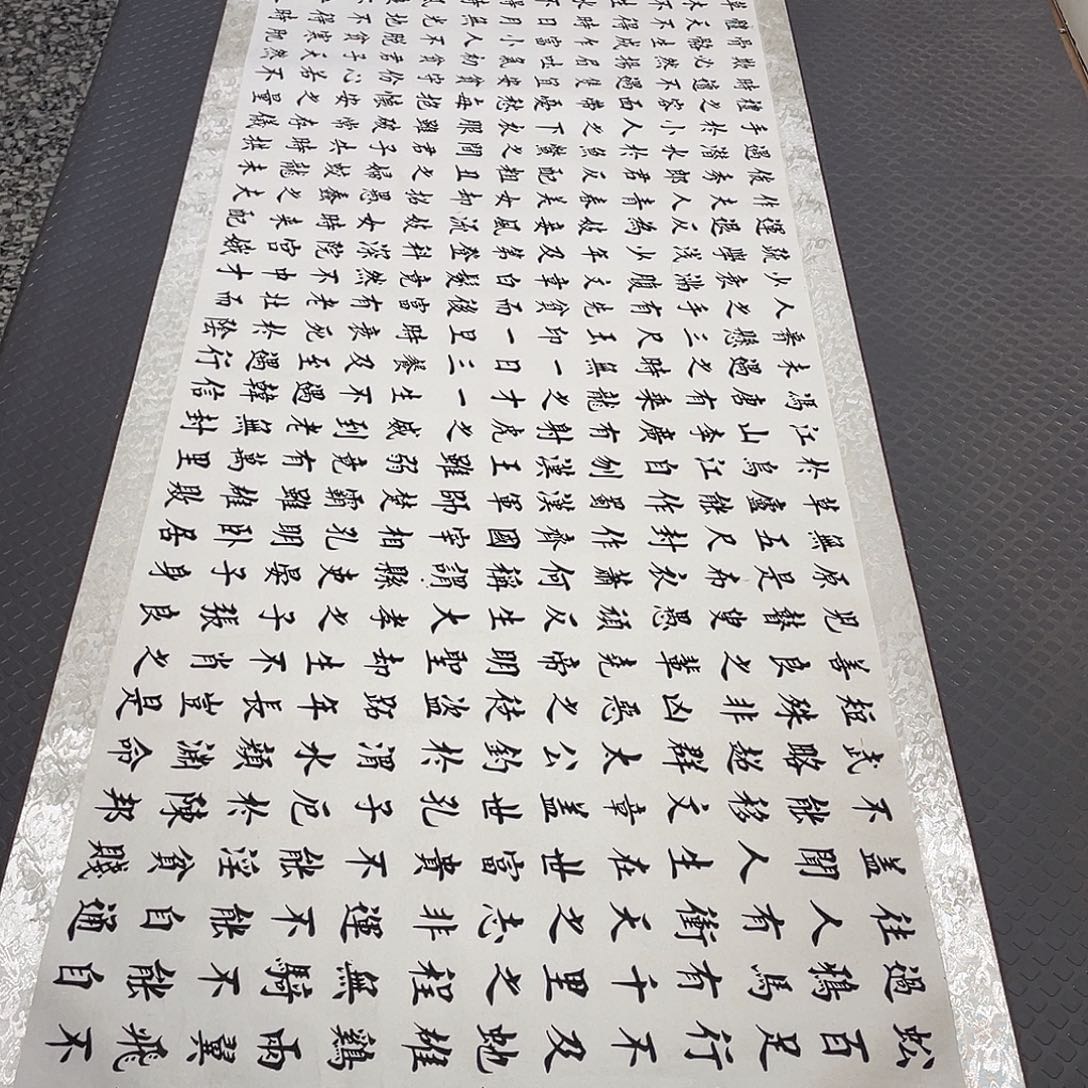 蚣百足行不及蛇雄鷄兩翼飛不
過鴉馬有千里之程無騎不能自
往人有衝天之志非運不能自通
蓋聞人生在世富貴不能淫貧賤
不能移文章蓋世孔子厄於陳邦
武略超群太公釣於渭水顏淵命
短殊非凶惡之徒盜跖年長豈是
善良之輩堯帝明聖却生不肖之
兒瞽叟愚頑反生大孝之子張良
原是布衣蕭何稱謂縣吏晏子身
無五尺封作齊國宰相孔明臥居
草盧能作蜀漢軍師楚霸雖雄敗
於烏江自刎漢王雖弱竟有萬里
江山李廣有射虎之威到老無封
馮唐有乘龍之才一生不遇韓信
未遇之時無一日三餐及至遇行
懸三尺玉印一旦時衰死於陰
人之手有先貧而後富有老壯而
少衰滿腹文章白髮竟然不中才
疏學淺少年及第登科深院宮娥
運退反為妓妾風流妓女時來配
作夫人青春美女却招愚蠢之夫
俊秀郎君反配粗丑之婦蛟龍未
遇潛水於魚鱉之間君子失時拱
手於小人之下衣服雖破常存儀
禮之容面帶憂愁毋抱懷安之量
時遭不遇宜安貧守份心若不
欺然揚眉吐氣初貧君子天然
骨骼生成乍富小人不脫貧寒肌
體天不得時日月無光地不得時
草木不生水不得時